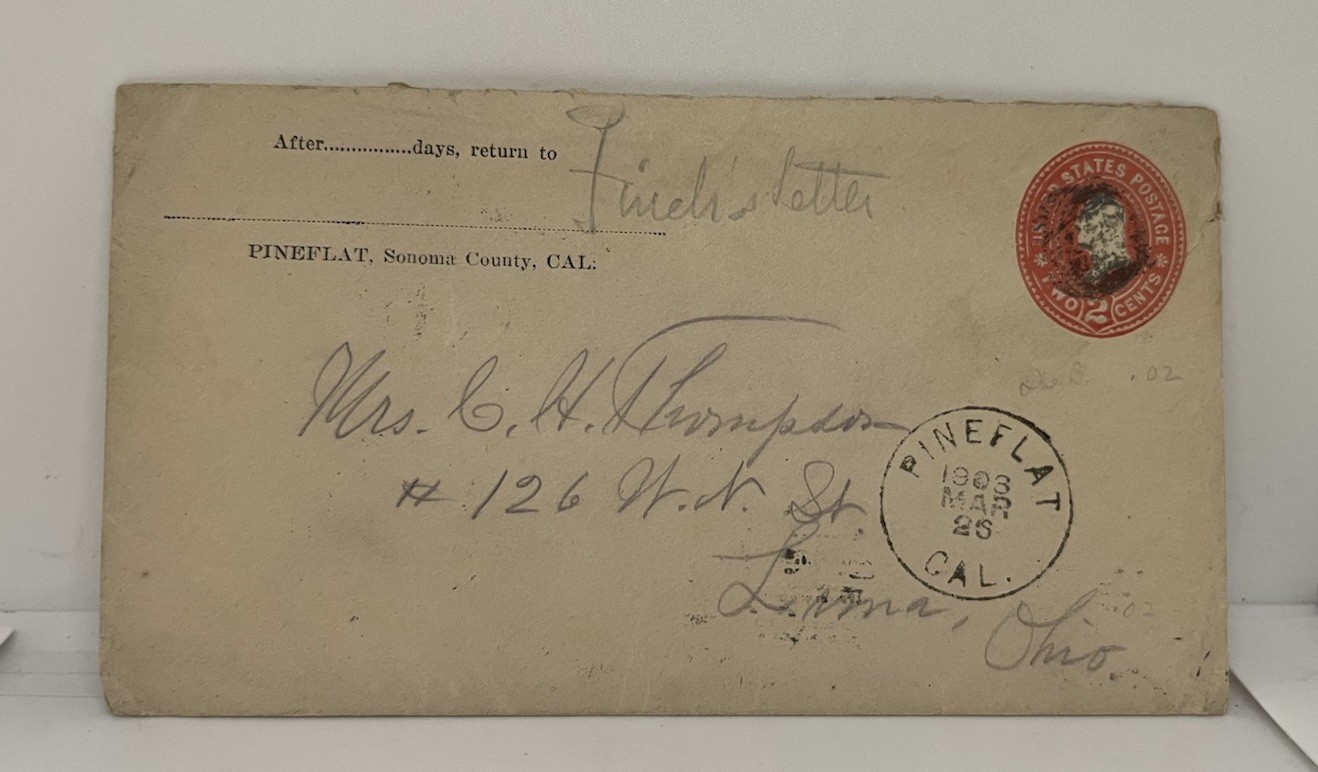 After...............days, return to
Finch's Letter
PINEFLAT, Sonoma County, CAL.
UNITED STATES POSTAGE
TWO 2 CENTS
Mrs. C. H. Thompson
# 126 W. N. St.
Lima, Ohio
PINEFLAT
MAR
CAL.
.02
.02